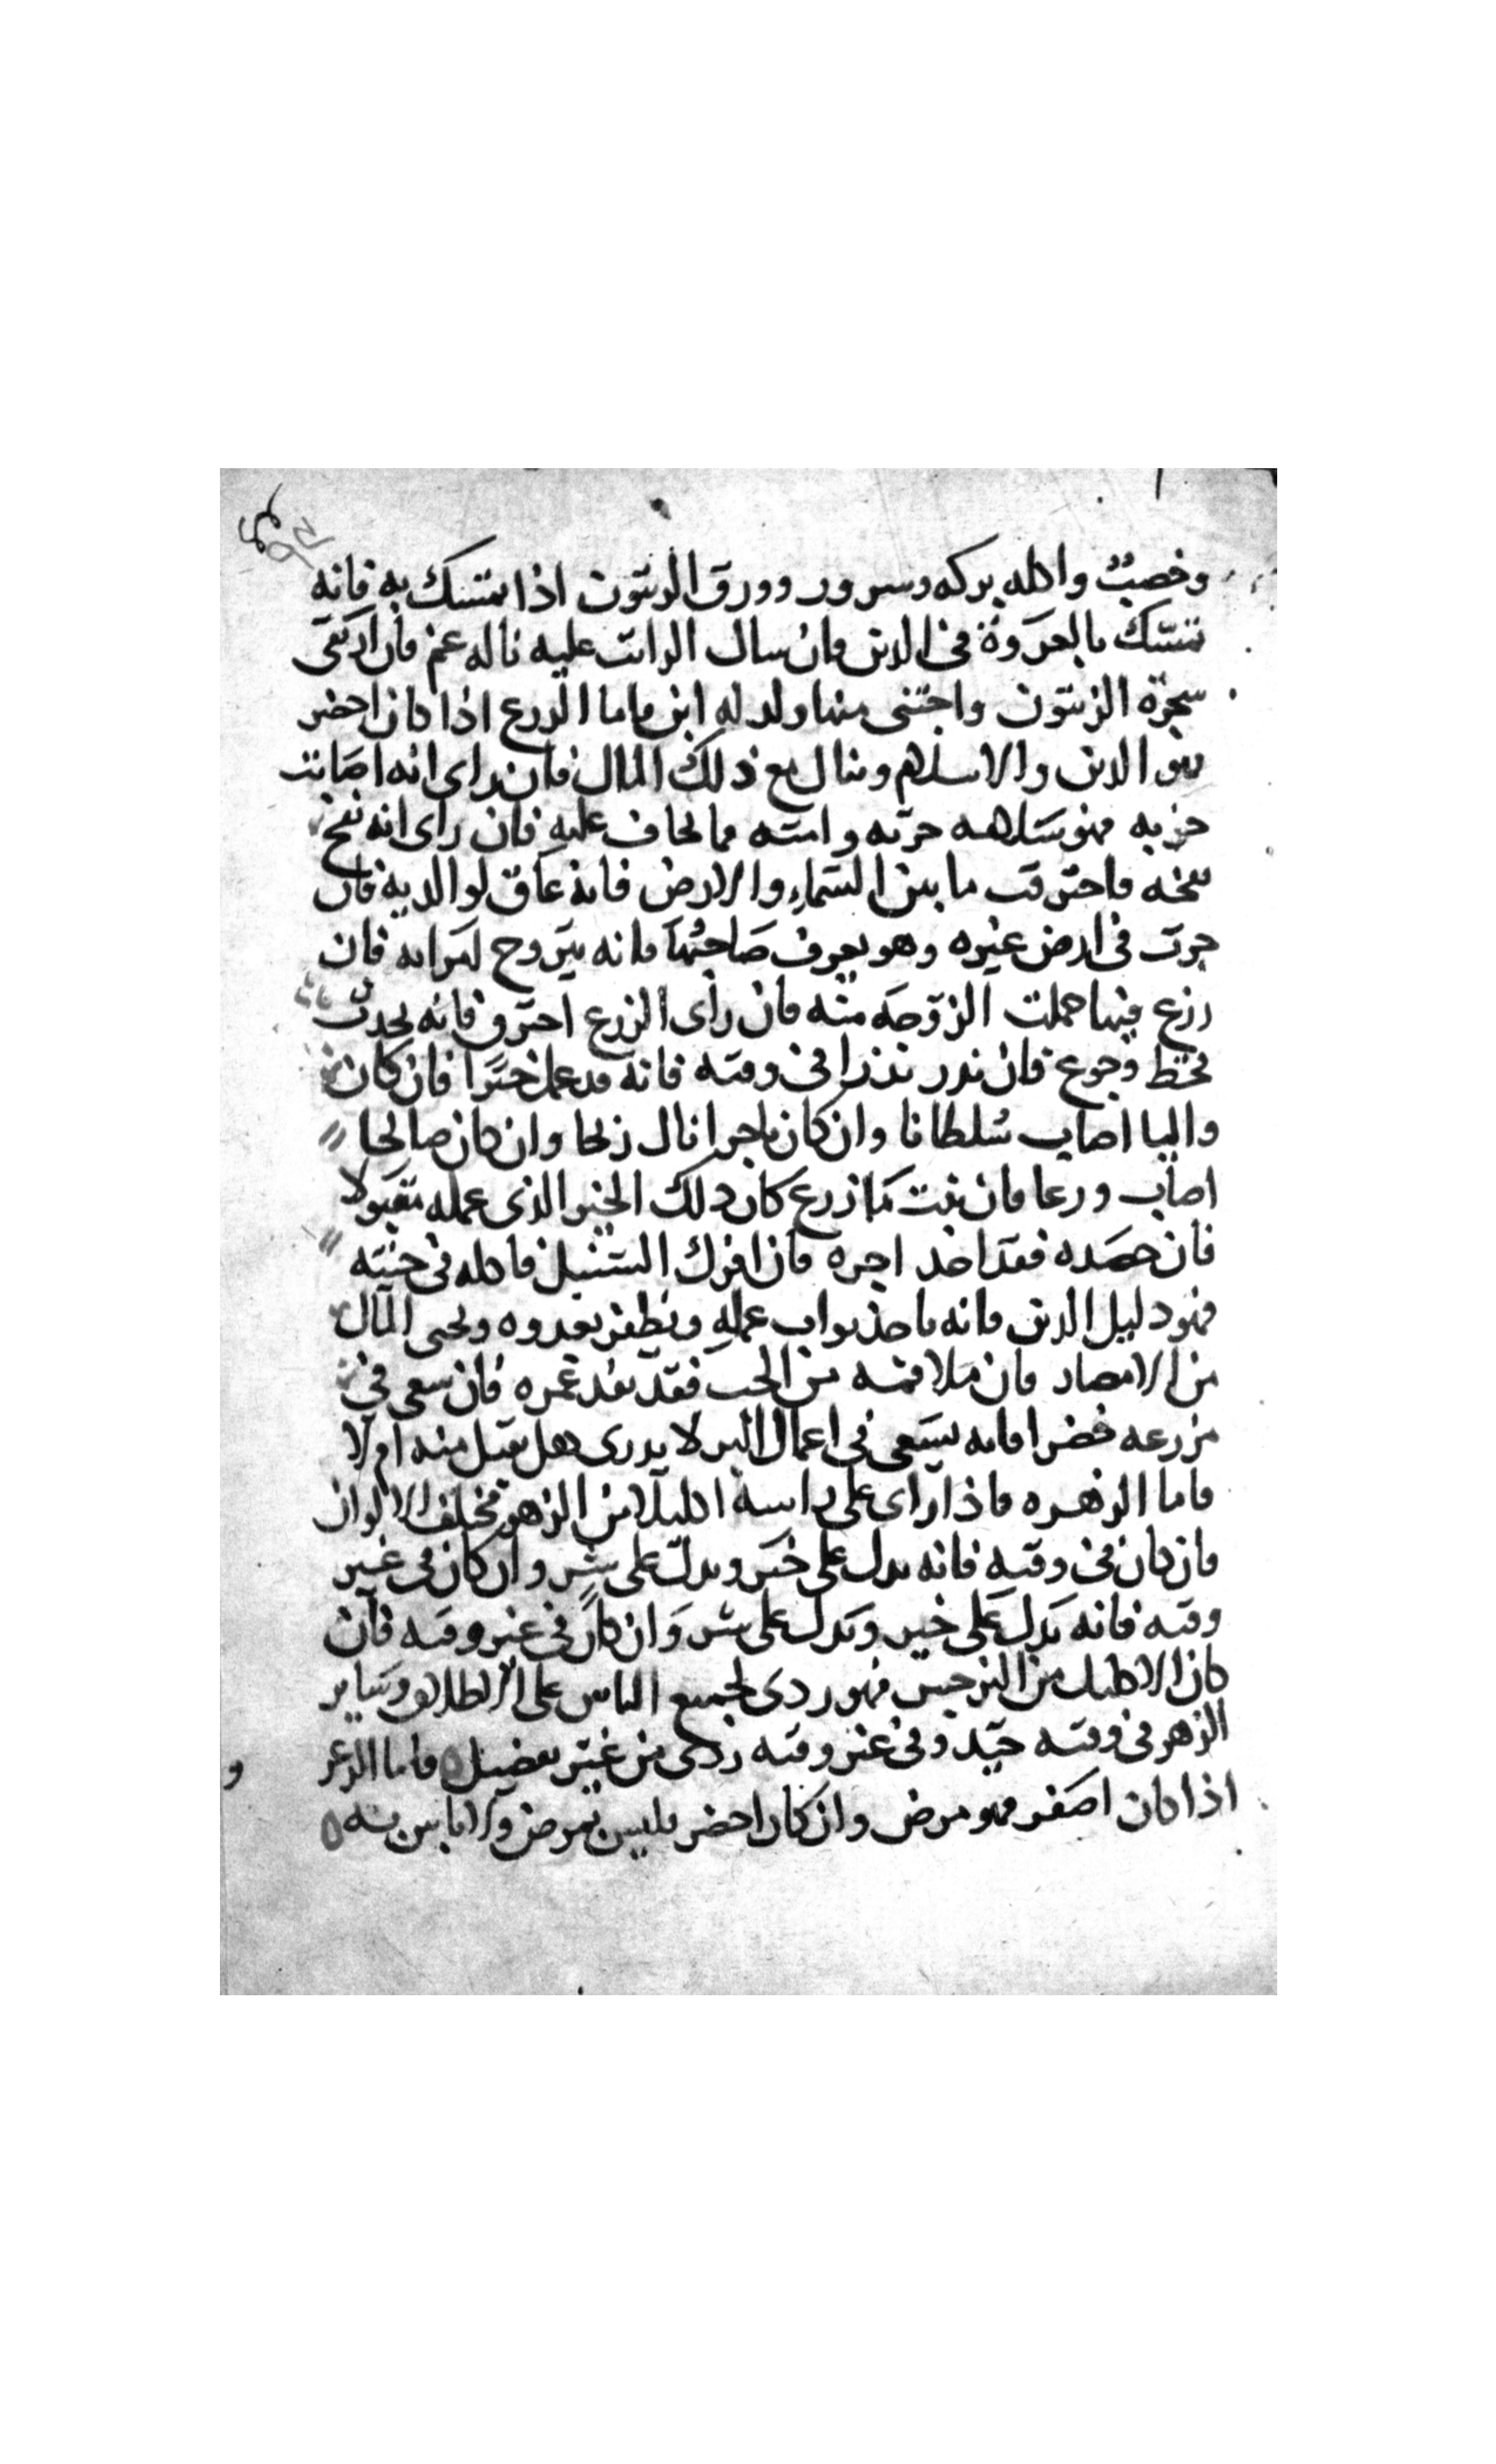 وخصب واكله بركه وسرور وورق الزيتون اذا تمسك به فانه
تمسك بالعروة في الدين وان سال الزيت عليه ناله غم فان ارتقى
شجرة الزيتون واجتنى منها ولد له ابن فاما الزرع اذا كان اخضر
فهو الدين والاسلام وينال مع ذلك المال فان راى انه اصابت
حربه فهو سلاهه حربه وامنه مما يخاف عليه فان راى انه نفخ
فاحترقت ما بين السماء والارض فانه عاق لوالديه فان
حرث في ارض غيره وهو يعرف صاحبها فانه يتزوج امراته فان
زرع فيها حملت الزوجه منه فان راى الزرع احترق فانه يحدث
قحط وجوع فان بذر بذرا في وقته فانه قد عمل خيرا فان كان
واليا اصاب سلطانا وان كان تاجرا نال ربحا وان كان صالحا
اصاب ورعا فان نبت ما زرع كان ذلك الخير الذي عمله مقبولا
فان حصده فقد اخذ اجره فان افرك السنبل فاكله في حينه
فهو دليل الدين فانه ياخذ ثواب عمله ويظفر بعدوه ويجبى المال
من الامصار فان ملا فمه من الحب فقد نفد عمره فان سعى في
مزرعه خضرا فانه يسعى في اعمال البر لا يدرى هل تقبل منه ام لا
فاما الزهره فاذا راى على راسه اكليلا من الزهر مختلف الالوان
فان كان في وقته فانه يدل على خير ويدل على شر وان كان في غير
وقته فانه يدل على خير ويدل على شر وان كان في غير وقته فان
كان الاكليل من النرجس فهو ردى لجميع الناس على الاطلاق وساير
الزهر في وقته جيد وفي غير وقته ردى من غير تفصيل فاما الزعر
اذا كان اصفر فهو مرض وان كان اخضر فليس بمرض ولا باس به